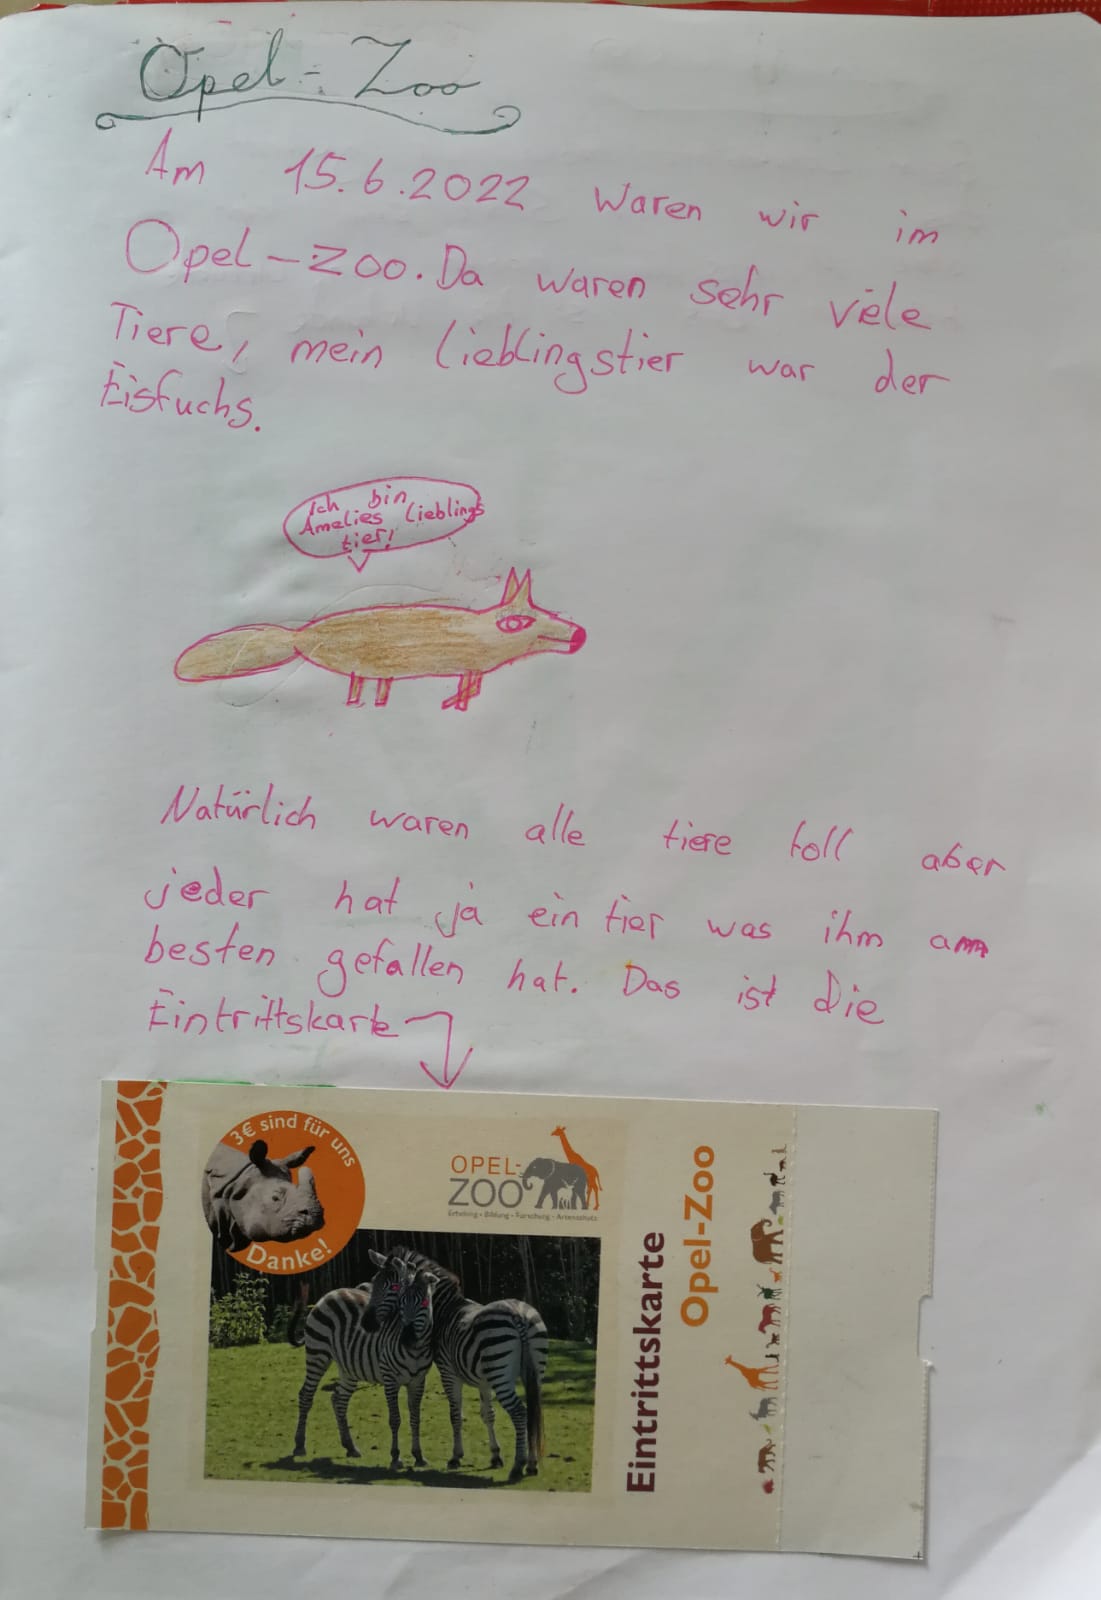 Opel-Zoo
Am 15.6.2022 waren wir im
Opel-Zoo. Da waren sehr viele
Tiere, mein Lieblingstier war der
Eisfuchs.
Ich bin
Amelies Lieblings
tier!
Natürlich waren alle tiere toll aber
jeder hat ja ein tier was ihm am
besten gefallen hat. Das ist die
Eintrittskarte
3€ sind für uns
Danke!
OPEL-
ZOO
Erholung • Bildung • Forschung • Artenschutz
Eintrittskarte
Opel-Zoo